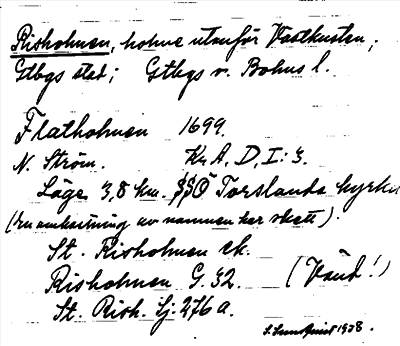 Risholmen, holme utanför Västkusten;
Gtbgs stad; Gtbgs o. Bohus l.
Flatholmen 1699.
N. Ström. Kr. A, D, I: 3.
Läge 3,8 km. SSÖ Torslanda kyrka
(En omkastning av namnen har skett).
St. Risholmen ek.
Risholmen G. 32. (Vänd!)
St. Rish. Sj. 276 a.
S. Lundquist 1938.